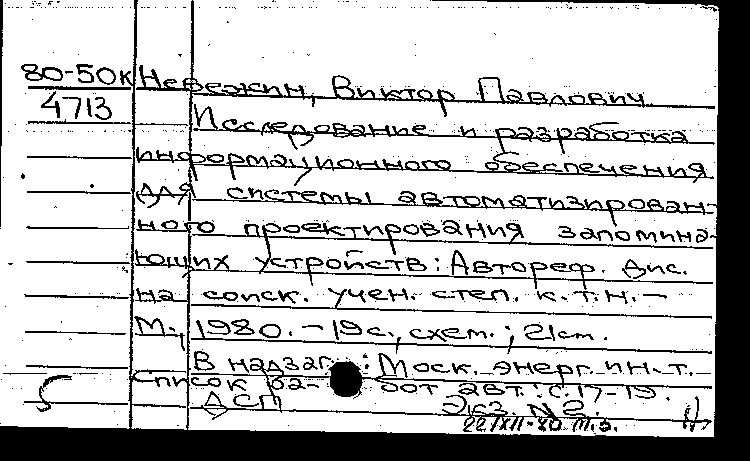 80-50к Невежин, Виктор Павлович
4713
Исследование и разработка
информационного обеспечения
для системы автоматизирован-
ного проектирования запомина-
ющих устройств: Автореф. Дис.
на соиск. учен. степ. к.т.н. –
М., 1980. – 19 с., схем.; 21 см.
В надзаг.: Моск. энерг. ин-т.
Список ра- бот авт.: с. 17-19.
ДСП Экз. №2.
22/XII-80 т.з.